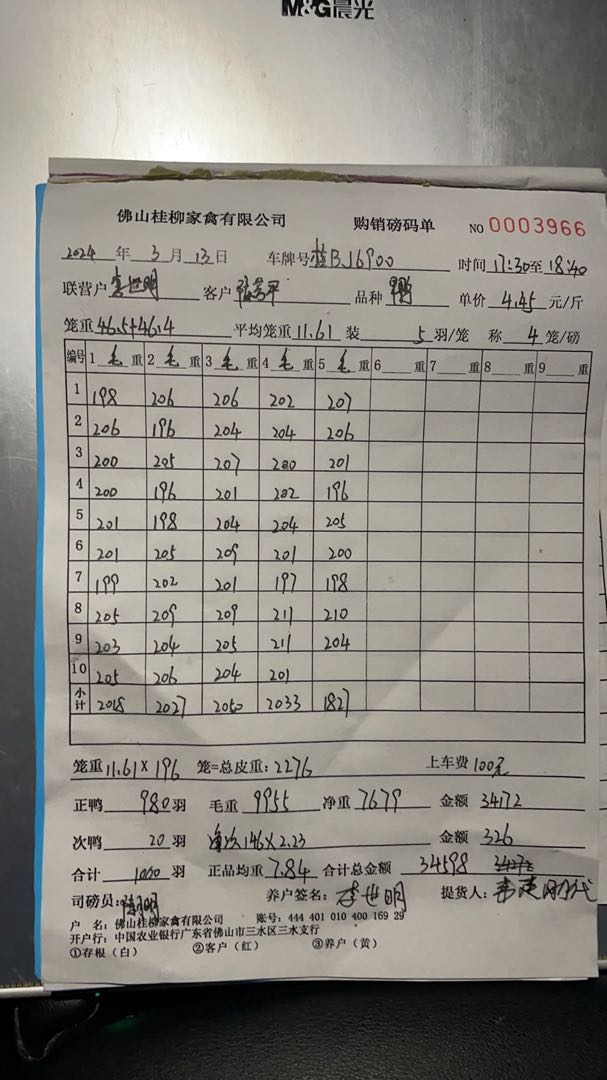 M&G晨光
佛山桂柳家禽有限公司 购销磅码单 NO 0003966
2024 年 3 月 13 日 车牌号 桂BJ6900 时间 17:30至 18:40
联营户 李世明 客户 品种 单价 4.45 元/斤
笼重 46.5+46.4 平均笼重 11.61 装 5 羽/笼 称 4 笼/磅
编号 1 毛 重 2 毛 重 3 毛 重 4 毛 重 5 毛 重 6 重 7 重 8 重 9 重
1 198 206 206 202 207
2 206 196 204 204 206
3 200 205 207 200 201
4 200 196 201 202 196
5 201 198 204 204 205
6 201 205 209 201 200
7 199 202 201 197 198
8 205 209 209 211 210
9 203 204 205 211 204
10 205 206 204 201
小计 2018 2027 2050 2033 1827
笼重 11.61 × 196 笼=总皮重: 2276 上车费 100元
正鸭 980 羽 毛重 9955 净重 7679 金额 34172
次鸭 20 羽 146×2.23 金额 326
合计 1000 羽 正品均重 7.84 合计总金额 34598
司磅员: 养户签名: 李世明 提货人:
户 名: 佛山桂柳家禽有限公司 账号: 444 401 010 400 169 29
开户行: 中国农业银行广东省佛山市三水区三水支行
①存根（白） ②客户（红） ③养户（黄）